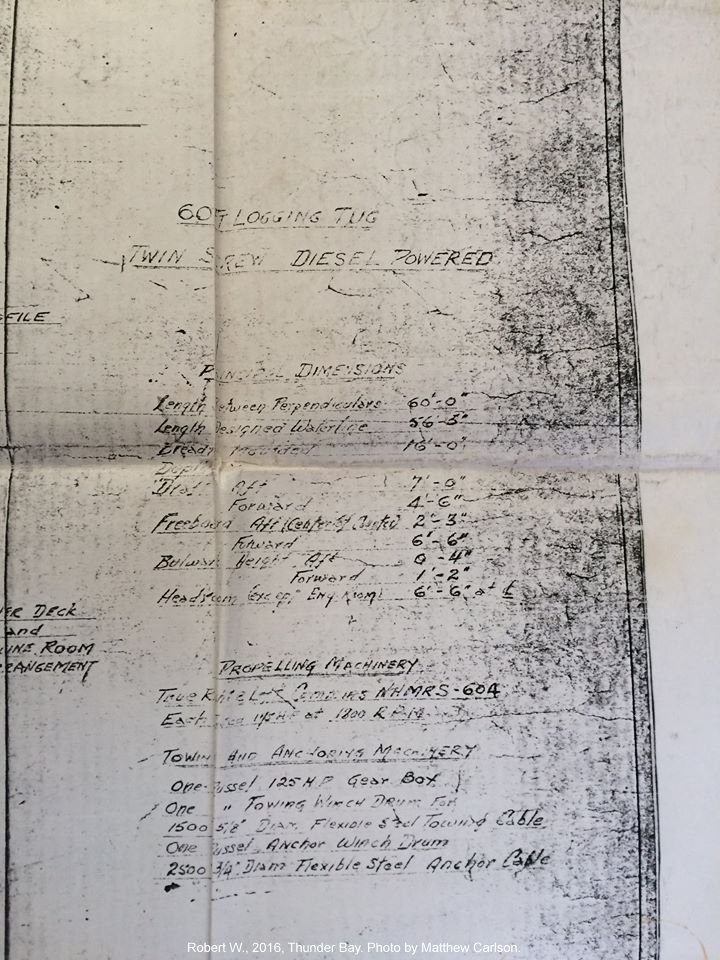 60 FT LOGGING TUG
TWIN SCREW DIESEL POWERED
FILE
PRINCIPAL DIMENSIONS
Length Between Perpendiculars 60'-0"
Length Designed Waterline 56-3"
Breadth Moulded 16'-0"
Depth
Draft Aft 7'-0"
Forward 4'-6"
Freeboard Aft (Center of 2'-3"
Forward 6'-6"
Bulwark Height Aft 0'-4"
Forward 1'-2"
Headroom (except Eng. Room) 6'-6" at ℄
ER DECK
and
INE ROOM
RRANGEMENT
PROPELLING MACHINERY
Cummins NHMRS-604
Each at 1800 R.P.M.
TOWING AND ANCHORING MACHINERY
One Russel 125 H.P. Gear Box
One " Towing Winch Drum For
1500 5/8" Diam. Flexible Steel Towing Cable
One Russel Anchor Winch Drum
2500 3/4" Diam Flexible Steel Anchor Cable
Robert W., 2016, Thunder Bay. Photo by Matthew Carlson.